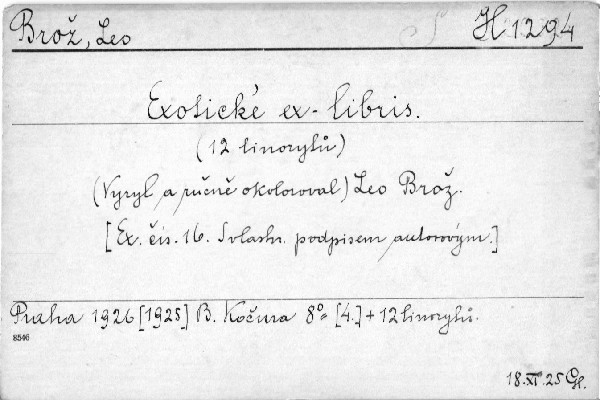 Brož, Leo H 1294
Exotické ex-libris.
(12 linorytů)
(Vyryl a ručně okoloroval) Leo Brož.
[Ex. čís. 16. S vlastn. podpisem autorovým.]
Praha 1926 [1925] B. Kočura 8° [4.] + 12 linorytů.
8546
18.XI.25